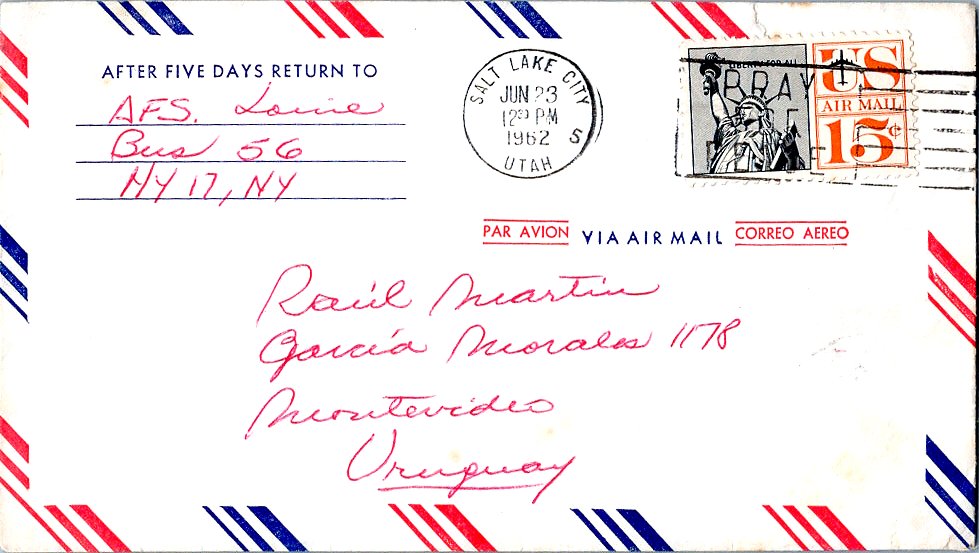 AFTER FIVE DAYS RETURN TO
AFS. Louise
Bus 56
NY 17, NY
SALT LAKE CITY
JUN 23
12 30 PM
1962
S
UTAH
LIBERTY FOR ALL
US
AIR MAIL
15¢
PRAY
FOR
PEACE
PAR AVION VIA AIR MAIL CORREO AEREO
Raúl Martin
García Morales 1178
Montevideo
Uruguay